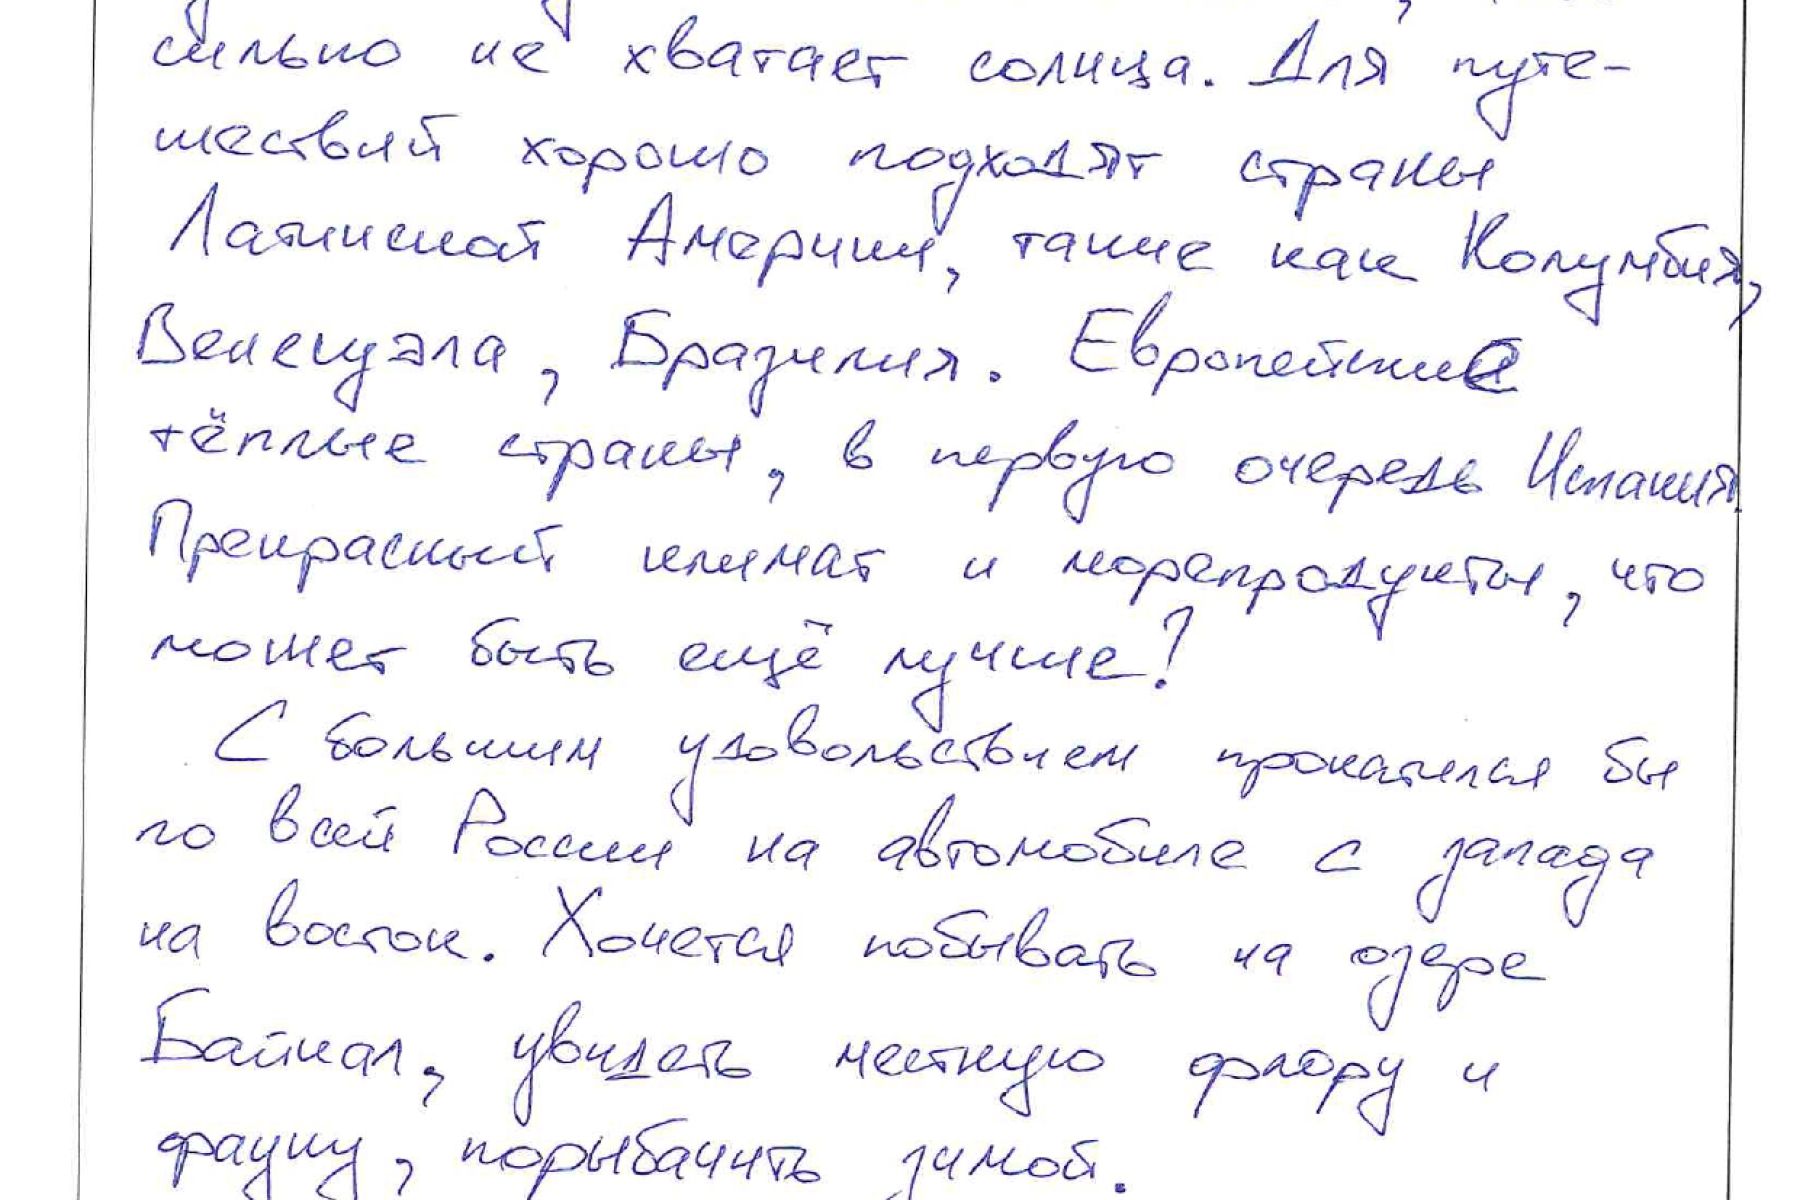 сильно не хватает солнца. Для путе-
шествий хорошо подходят страны
Латинской Америки, такие как Колумбия,
Венесуэла, Бразилия. Европейские
тёплые страны, в первую очередь Испания.
Прекрасный климат и морепродукты, что
может быть ещё лучше?
С большим удовольствием прокатился бы
по всей России на автомобиле с запада
на восток. Хочется побывать на озере
Байкал, увидеть местную флору и
фауну, порыбачить зимой.